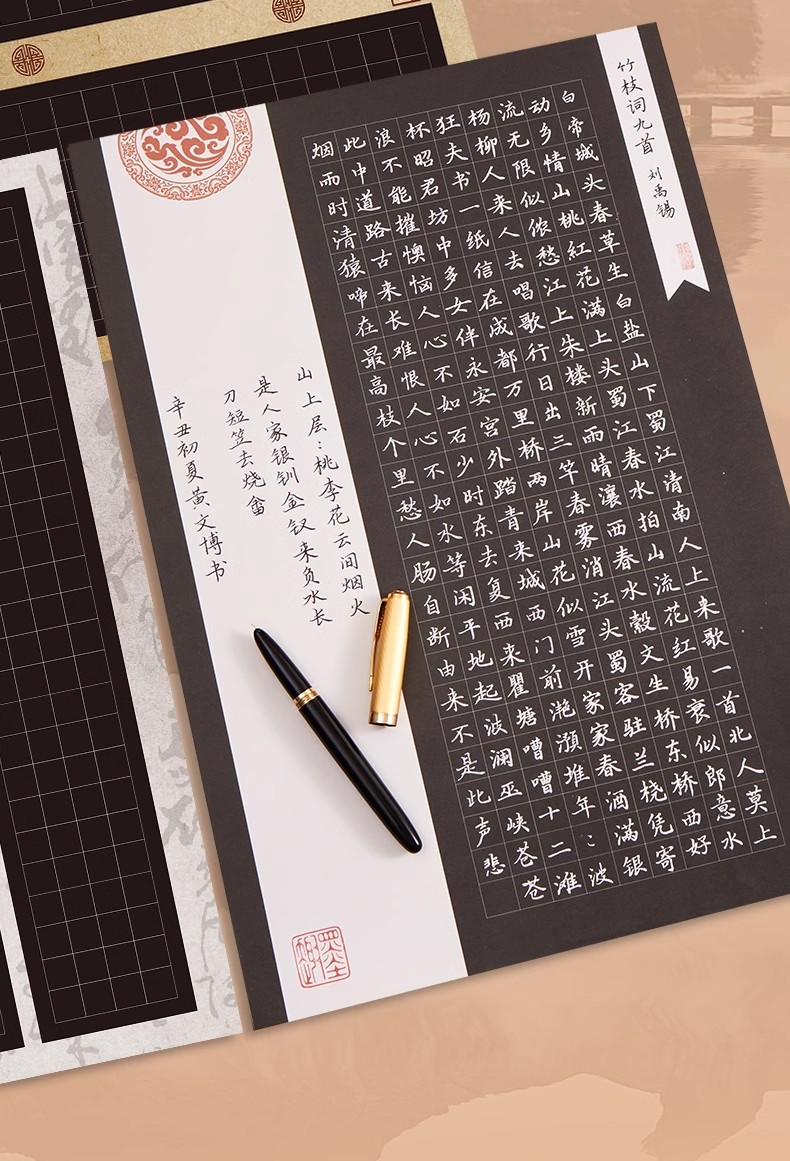 竹枝词九首 刘禹锡
白帝城头春草生白盐山下蜀江清南人上来歌一首北人莫上
动乡情山桃紅花满上头蜀江春水拍山流花红易衰似郎意水
流无限似侬愁江上朱楼新雨晴瀼西春水縠文生桥东桥西好
杨柳人来人去唱歌行日出三竿春雾消江头蜀客驻兰桡凭寄
狂夫书一纸信在成都万里桥两岸山花似雪开家家春酒满银
杯昭君坊中多女伴永安宫外踏青来城西门前滟滪堆年〻波
浪不能摧懊恼人心不如石少时东去复西来瞿塘嘈嘈十二滩
此中道路古来长难恨人心不如水等闲平地起波澜巫峡苍苍
烟雨时清猿啼在最高枝个里愁人肠自断由来不是此声悲
山上层〻桃李花云间烟火
是人家银钏金钗来负水长
刀短笠去烧畲
辛丑初夏黄文博书